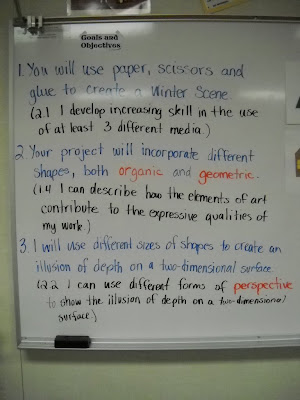 Goals and
Objectives
1. You will use paper, scissors and
glue to create a Winter Scene.
(2.1 I develop increasing skill in the use
of at least 3 different media.)
2. Your project will incorporate different
shapes, both organic and geometric.
(1.4 I can describe how the elements of art
contribute to the expressive qualities of
my work.)
3. I will use different sizes of shapes to create an
illusion of depth on a two-dimensional surface.
(2.2 I can use different forms of perspective
to show the illusion of depth on a two-dimensional
surface.)